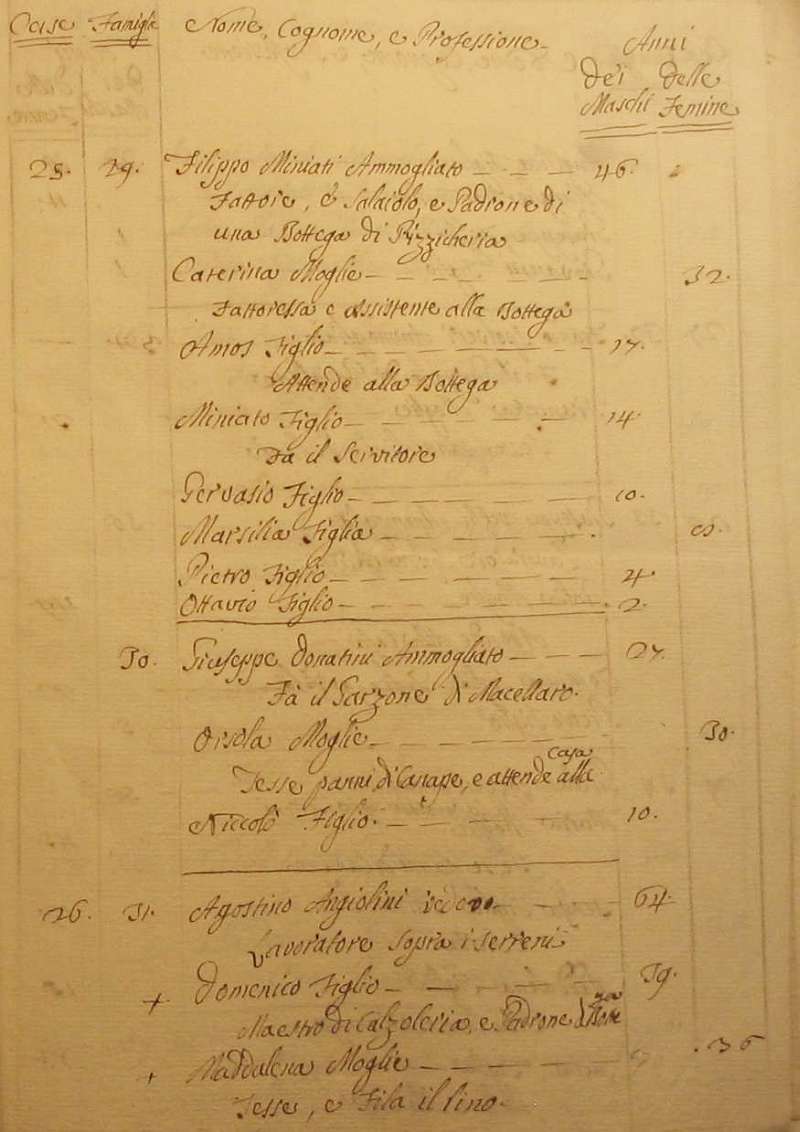 Case Famiglie Nome, Cognome, e Professione Anni
dei delle
Maschi Femine
25. 29. Filippo Miniati Ammogliato 46.
Fattore, è Salaiolo, e Padrone di
una Bottega di Pizzicheria
Caterina Moglie 32.
Fattoressa e assistente alla Bottega
Amos Figlio 17.
Attende alla Bottega
Miniato Figlio 14.
Fa il Servitore
Gervasio Figlio 10.
Marsilia Figlia
Pietro Figlio 4.
Ottavio Figlio 2.
30. Giuseppe Donatini Ammogliato 27.
Fà il Garzone di Macellaro.
Orsola Moglie 30.
Tesse panni di Canape, e attende alla Casa
Niccolò Figlio. 10.
26. 31. Agostino Angiolini 64.
Lavoratore sopra i terreni
+ Domenico Figlio 39.
Maestro di Calzoleria, e Padrone
+ Maddalena Moglie 36
Tesse, e Fila il lino.